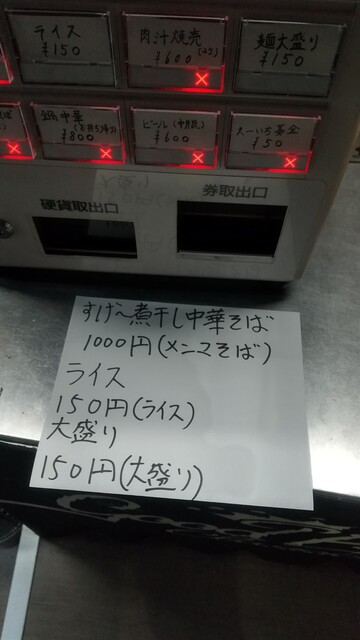 ライス
¥150
肉汁焼売
¥600
麺大盛り
¥150
¥800
ビール(中瓶)
¥600
¥50
硬貨取出口
券取出口
すげ〜煮干し中華そば
1000円(メンマそば)
ライス
150円(ライス)
大盛り
150円(大盛り)